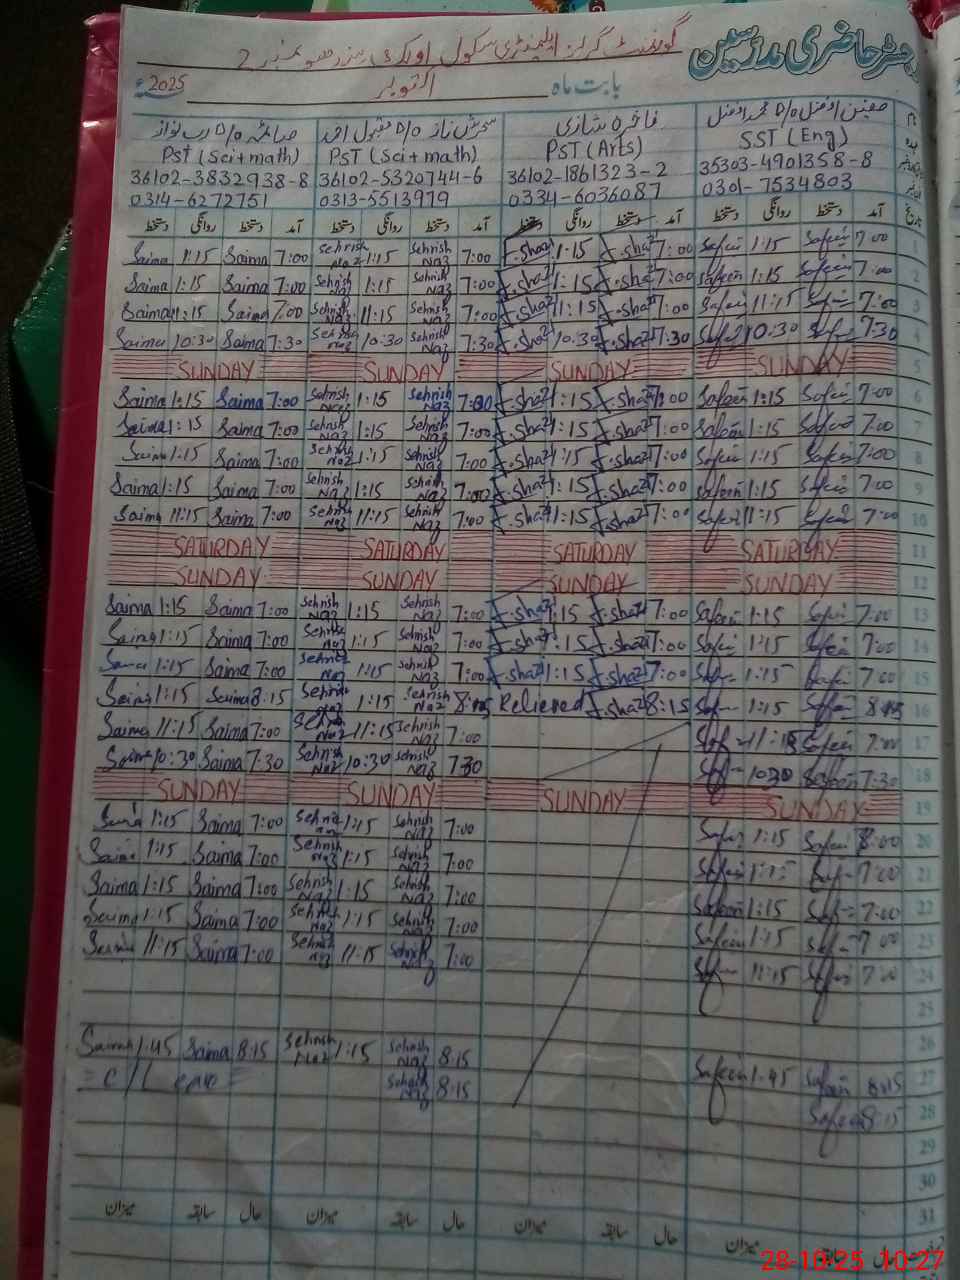 رجسٹر حاضری مدرسین
گورنمنٹ گرلز ایلیمنٹری سکول
بابت ماہ اکتوبر 2025ء
SST (Eng)
35303-4901358-8
0301-7534803
فاخرہ شازی
PST (Arts)
36102-1861323-2
0334-6036087
PST (Sci+math)
36102-5320744-6
0313-5513979
PST (Sci+math)
36102-3832938-8
0314-6272751
آمد دستخط روانگی دستخط آمد دستخط روانگی دستخط آمد دستخط روانگی دستخط آمد دستخط روانگی دستخط
Saima 1:15 Saima 7:00 Sehrish Naz 1:15 Sehrish Naz 7:00 F.shaz 1:15 F.shaz 7:00 Safeen 1:15 Safeen 7:00 1
Saima 1:15 Saima 7:00 Sehrish Naz 1:15 Sehrish Naz 7:00 F.shaz 1:15 F.shaz 7:00 Safeen 1:15 Safeen 7:00 2
Saima 11:15 Saima 7:00 Sehrish Naz 11:15 Sehrish Naz 7:00 F.shaz 11:15 F.shaz 7:00 Safeen 11:15 Safeen 7:00 3
Saima 10:30 Saima 7:30 Sehrish Naz 10:30 Sehrish Naz 7:30 F.shaz 10:30 F.shaz 7:30 10:30 7:30 4
SUNDAY SUNDAY SUNDAY SUNDAY 5
Saima 1:15 Saima 7:00 Sehrish Naz 1:15 Sehrish Naz 7:00 F.shaz 1:15 F.shaz 7:00 Safeen 1:15 Safeen 7:00 6
Saima 1:15 Saima 7:00 Sehrish Naz 1:15 Sehrish Naz 7:00 F.shaz 1:15 F.shaz 7:00 Safeen 1:15 Safeen 7:00 7
Saima 1:15 Saima 7:00 Sehrish Naz 1:15 Sehrish Naz 7:00 F.shaz 1:15 F.shaz 7:00 Safeen 1:15 Safeen 7:00 8
Saima 1:15 Saima 7:00 Sehrish Naz 1:15 Sehrish Naz 7:00 F.shaz 1:15 F.shaz 7:00 Safeen 1:15 Safeen 7:00 9
Saima 11:15 Saima 7:00 Sehrish Naz 11:15 Sehrish Naz 7:00 F.shaz 11:15 F.shaz 7:00 Safeen 11:15 Safeen 7:00 10
SATURDAY SATURDAY SATURDAY SATURDAY 11
SUNDAY SUNDAY SUNDAY SUNDAY 12
Saima 1:15 Saima 7:00 Sehrish Naz 1:15 Sehrish Naz 7:00 F.shaz 1:15 F.shaz 7:00 Safeen 1:15 Safeen 7:00 13
Saima 1:15 Saima 7:00 Sehrish Naz 1:15 Sehrish Naz 7:00 F.shaz 1:15 F.shaz 7:00 Safeen 1:15 Safeen 7:00 14
Saima 1:15 Saima 7:00 Sehrish Naz 1:15 Sehrish Naz 7:00 F.shaz 1:15 F.shaz 7:00 Safeen 1:15 Safeen 7:00 15
Saima 1:15 Saima 8:15 Sehrish Naz 1:15 Sehrish Naz 8:15 Relieved F.shaz 8:15 1:15 8:15 16
Saima 11:15 Saima 7:00 Sehrish Naz 11:15 Sehrish Naz 7:00 11:15 Safeen 7:00 17
Saima 10:30 Saima 7:30 Sehrish Naz 10:30 Sehrish Naz 7:30 10:30 Safeen 7:30 18
SUNDAY SUNDAY SUNDAY SUNDAY 19
Saima 1:15 Saima 7:00 Sehrish Naz 1:15 Sehrish Naz 7:00 1:15 Safeen 8:00 20
Saima 1:15 Saima 7:00 Sehrish Naz 1:15 Sehrish Naz 7:00 Safeen 1:15 7:00 21
Saima 1:15 Saima 7:00 Sehrish Naz 1:15 Sehrish Naz 7:00 Safeen 1:15 7:00 22
Saima 1:15 Saima 7:00 Sehrish Naz 1:15 Sehrish Naz 7:00 Safeen 1:15 7:00 23
Saima 11:15 Saima 7:00 Sehrish Naz 11:15 Sehrish Naz 7:00 11:15 Safeen 7:00 24
25
26
Saimah 1:45 Saima 8:15 Sehrish Naz 1:15 Sehrish Naz 8:15 Safeen 1:45 Safeen 8:15 27
C/Leave Sehrish Naz 8:15 Safeen 8:15 28
29
30
31
حال سابقہ میزان حال سابقہ میزان حال سابقہ میزان حال سابقہ میزان
28-10-25 10:27